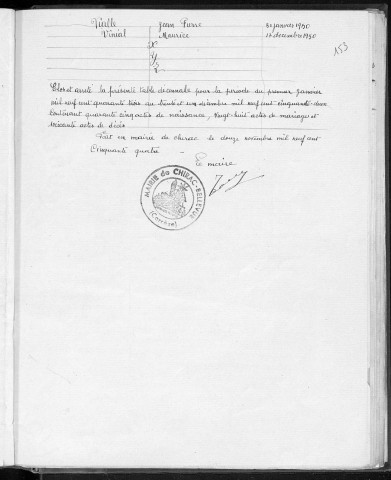 Vialle Jean Pierre 8 janvier 1950
Vinial Maurice 12 decembre 1950
153
X
Y
Z
Clos et arreté la présente table décennale pour la periode du premier Janvier
mil neuf cent quarante trois au trente et un decembre mil neuf cent cinquante deux
contenant quarante cinq actes de naissance, vingt-huit actes de mariage et
soixante actes de décès
Fait en mairie de chirac le douze novembre mil neuf cent
Cinquante quatre -
Le maire
MAIRIE de CHIRAC-BELLEVUE
(Corrèze)